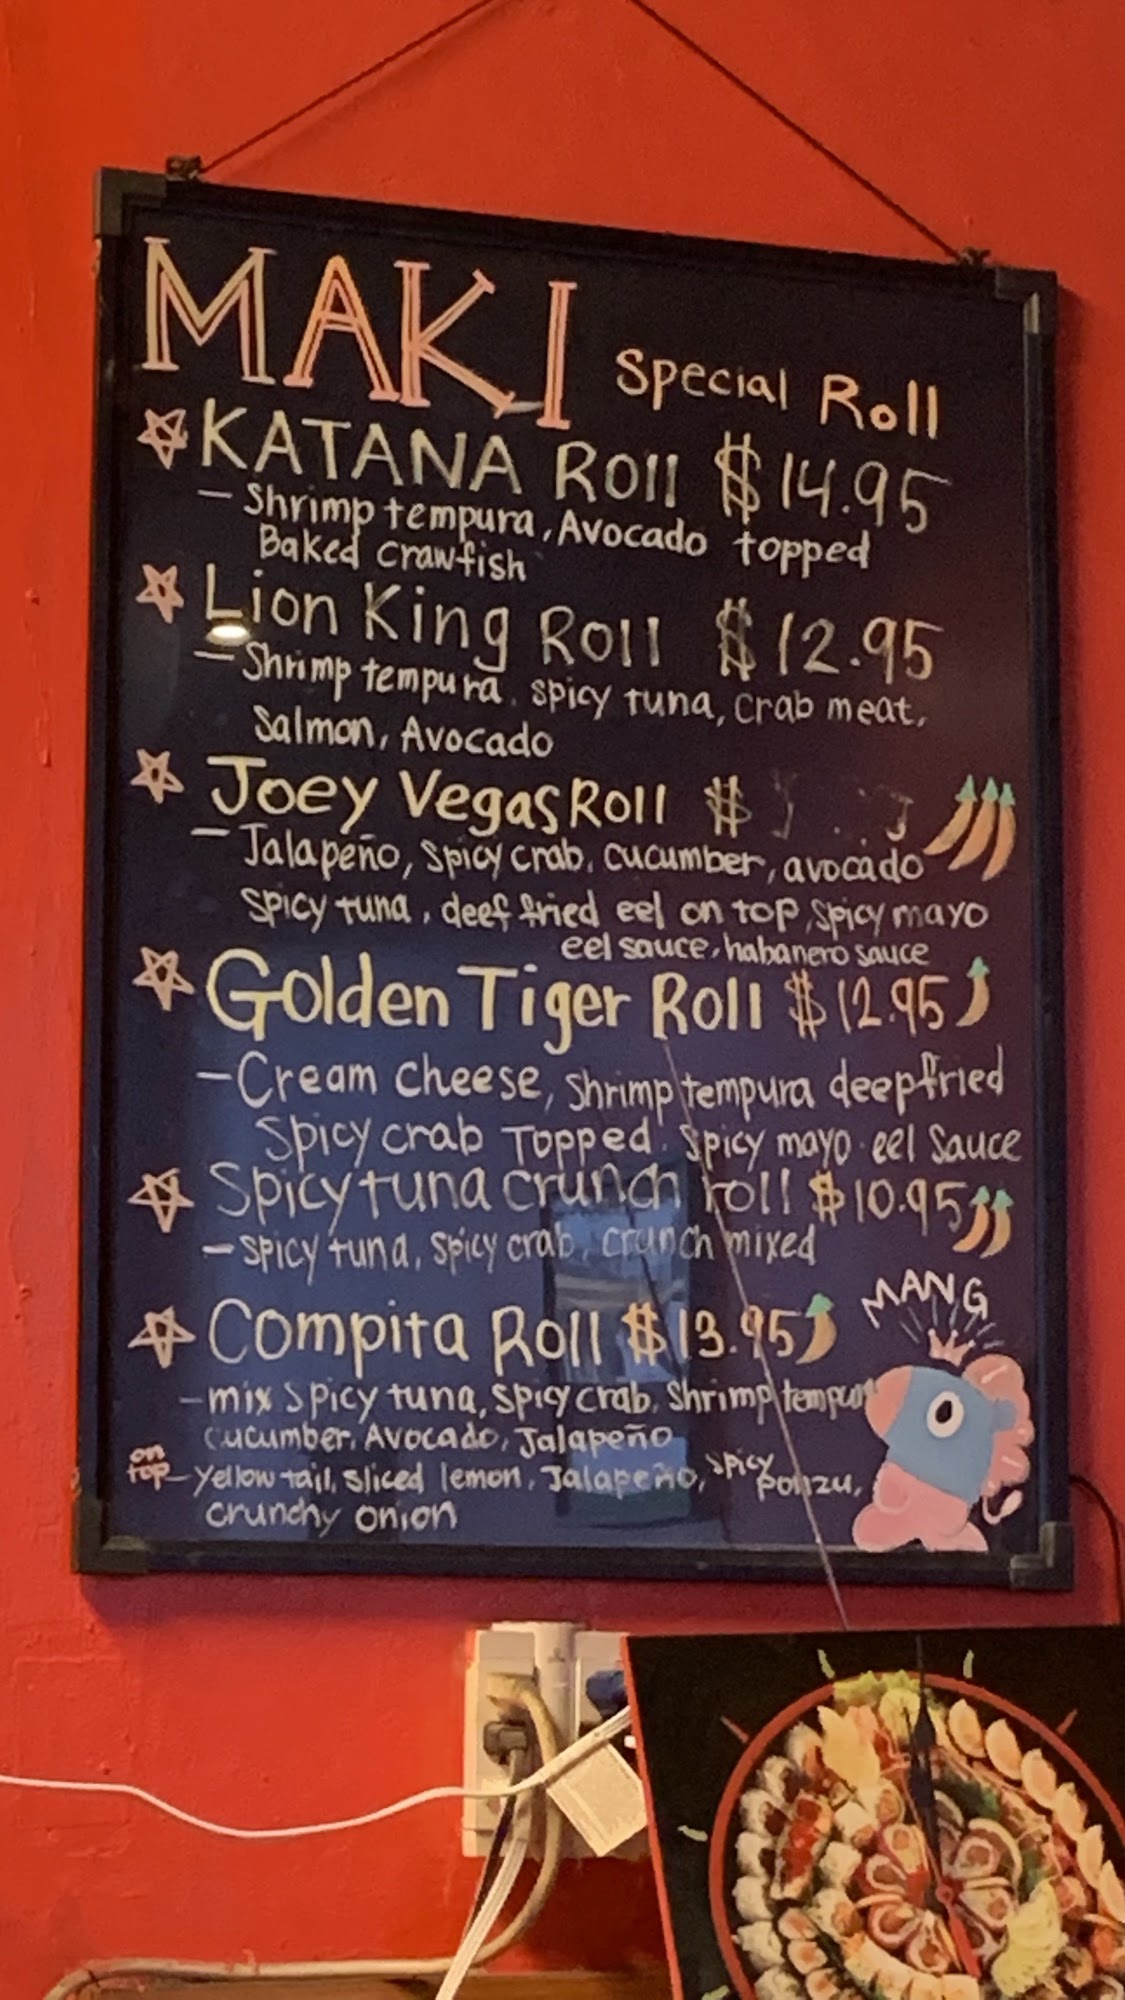 MAKI Special Roll
KATANA Roll $14.95
- Shrimp tempura, Avocado topped
Baked crawfish
Lion King Roll $12.95
- Shrimp tempura, spicy tuna, crab meat,
Salmon, Avocado
Joey Vegas Roll $
- Jalapeño, spicy crab, cucumber, avocado
spicy tuna, deef fried eel on top, spicy mayo
eel sauce, habanero sauce
Golden Tiger Roll $12.95
- Cream cheese, Shrimp tempura deepfried
Spicy crab Topped. Spicy mayo. eel Sauce
Spicy tuna crunch roll $10.95
- spicy tuna, spicy crab, crunch mixed
MANG
Compita Roll $13.95
- mix spicy tuna, spicy crab, Shrimp tempura
cucumber, Avocado, Jalapeño
on top - Yellow tail, sliced lemon, Jalapeño, spicy ponzu,
crunchy onion